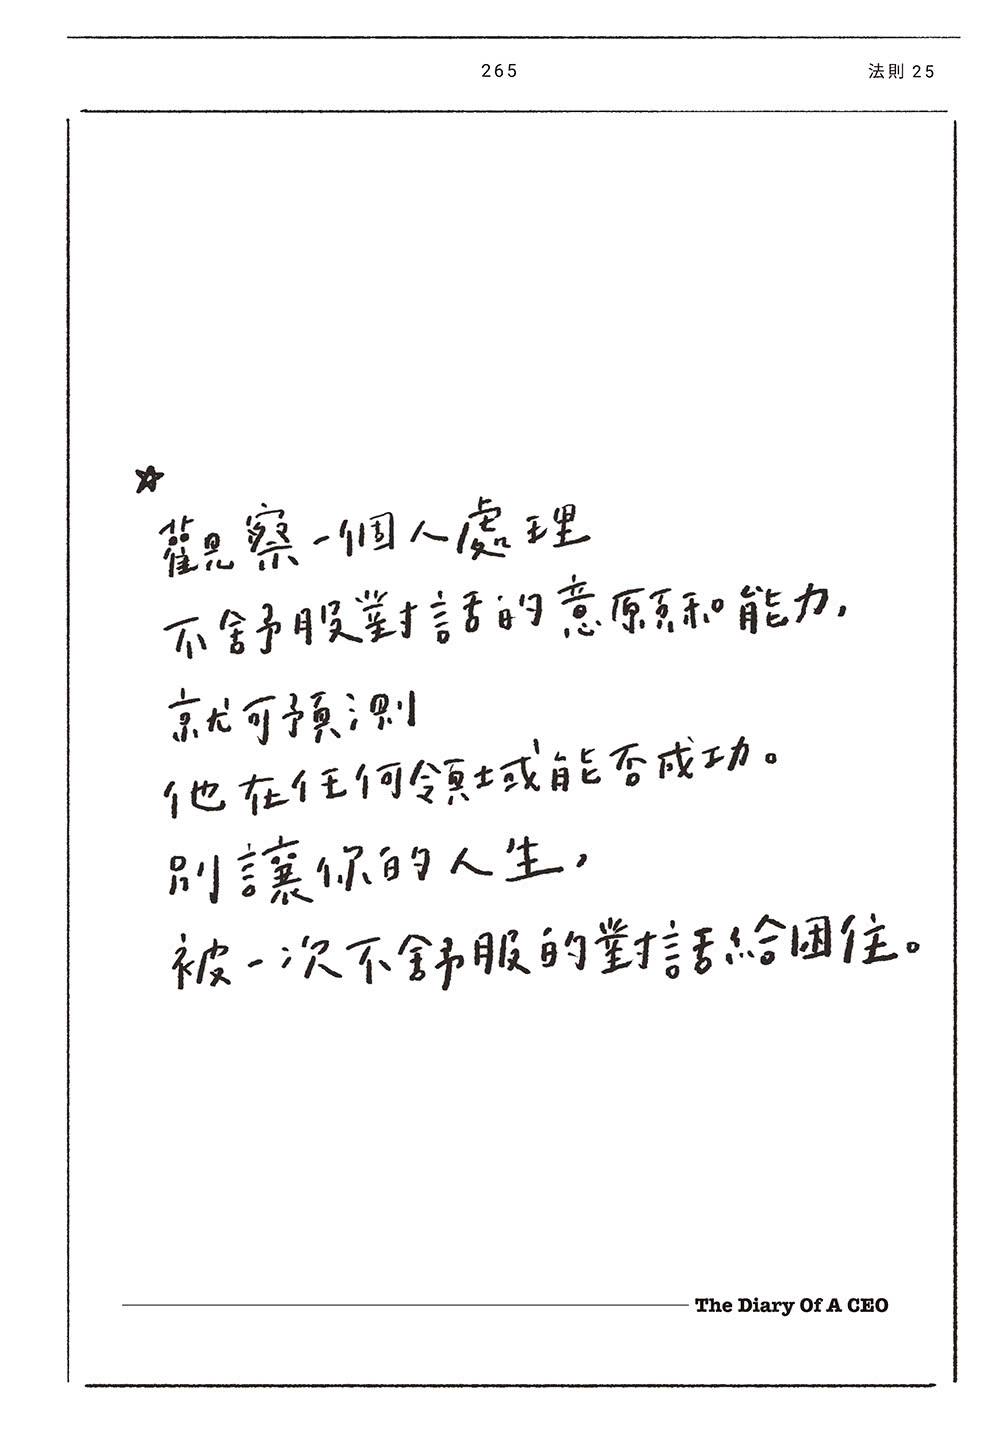 265
法則 25
觀察一個人處理
不舒服對話的意願和能力,
就可預測
他在任何領域能否成功。
別讓你的人生,
被一次不舒服的對話給困住。
The Diary Of A CEO